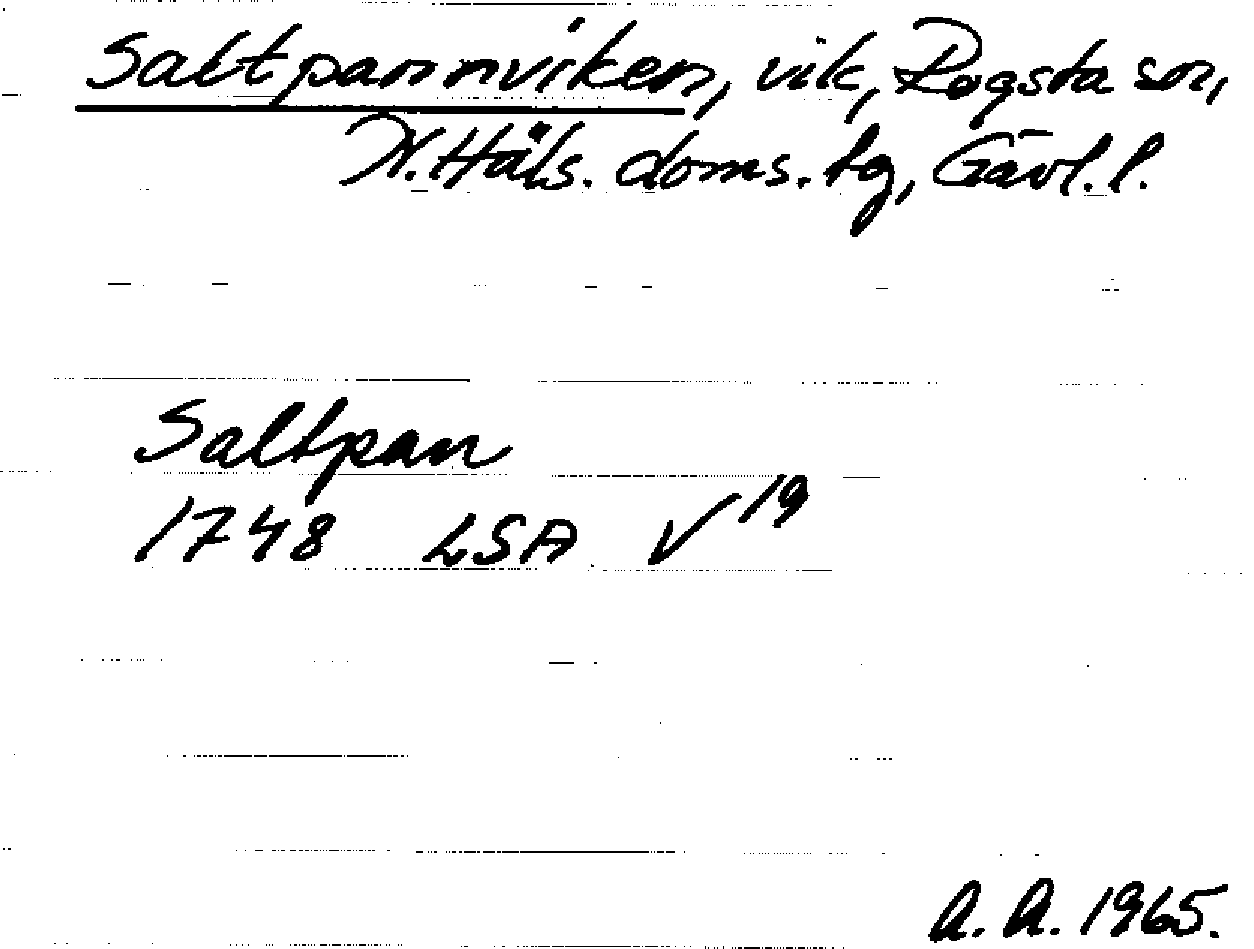 Saltpannviken, vik, Rogsta sn,
N. Häls. doms. tg, Gävl. l.
Saltpan
1748 LSA V 19
A. A. 1965.